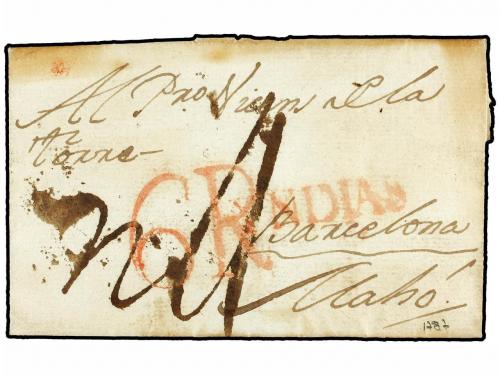 Al Pro Vicen de la
Torre
6R YNDIAS
Barcelona
Mahó.
1787